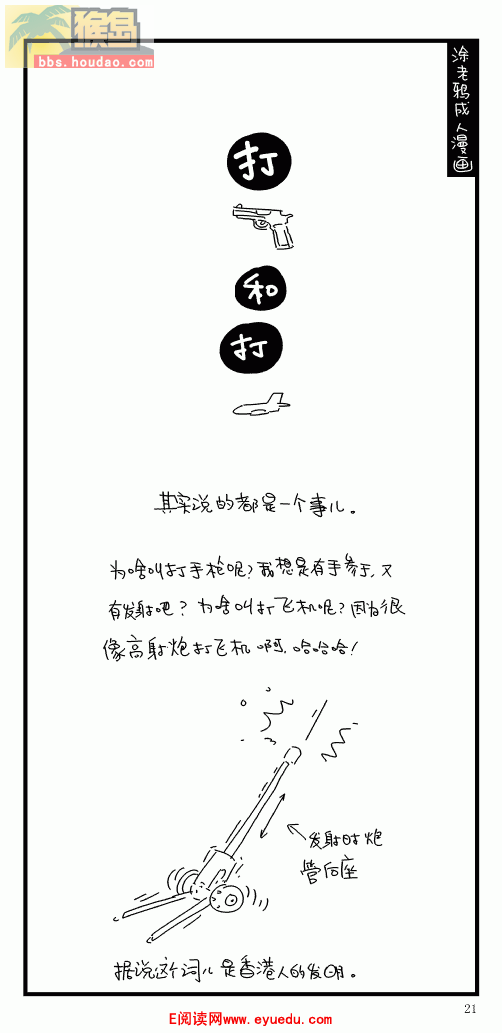 猴岛
bbs.houdao.com
涂老鸦成人漫画
打
和
打
其实说的都是一个事儿。
为啥叫打手枪呢?我想是有手参于,又
有发射吧?为啥叫打飞机呢?因为很
像高射炮打飞机啊,哈哈哈!
发射时炮
管后座
据说这个词儿是香港人的发明。
21
E阅读网www.eyuedu.com